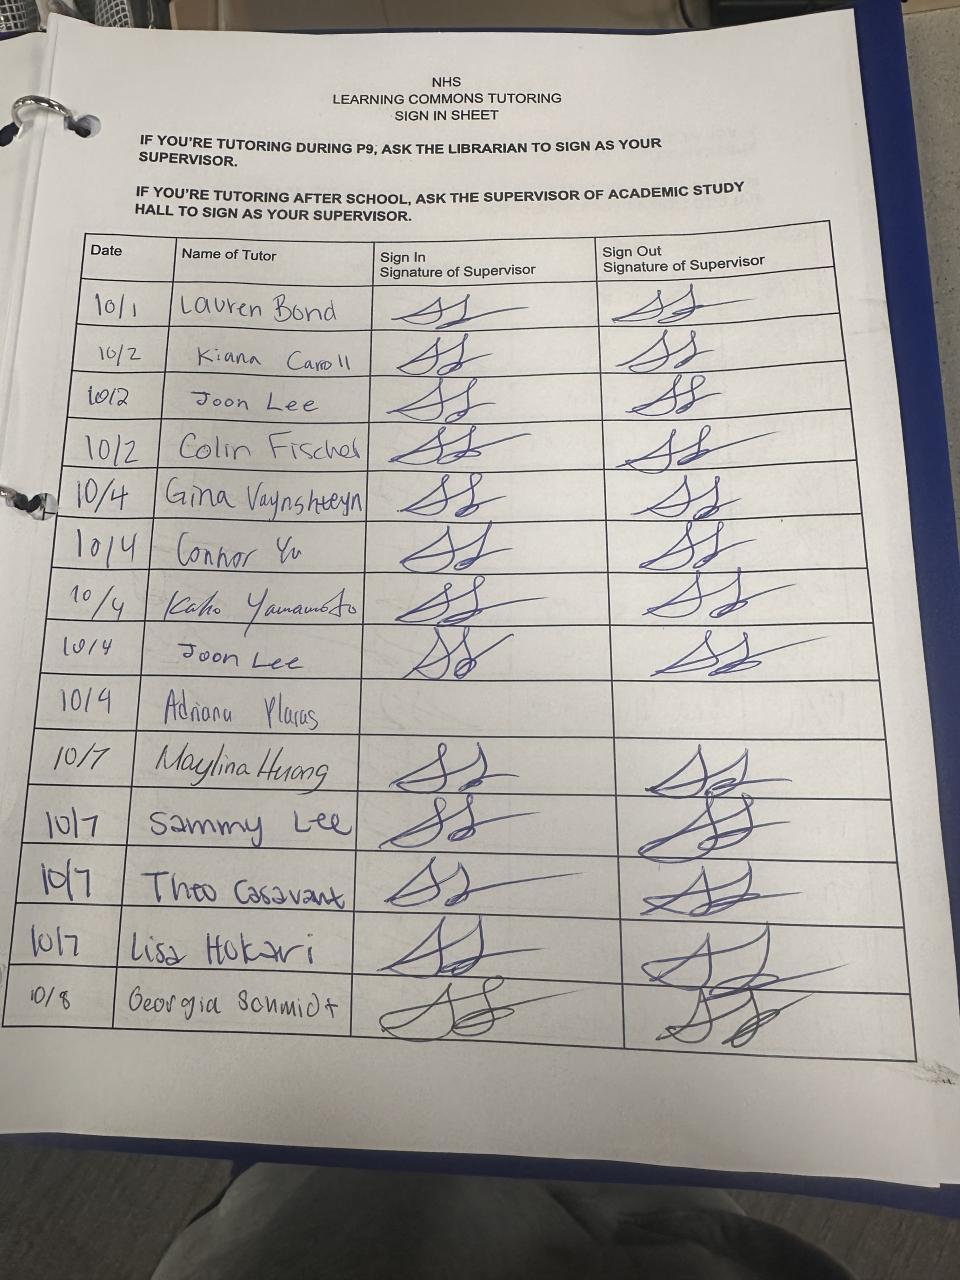 NHS
LEARNING COMMONS TUTORING
SIGN IN SHEET
IF YOU'RE TUTORING DURING P9, ASK THE LIBRARIAN TO SIGN AS YOUR
SUPERVISOR.
IF YOU'RE TUTORING AFTER SCHOOL, ASK THE SUPERVISOR OF ACADEMIC STUDY
HALL TO SIGN AS YOUR SUPERVISOR.
Date Name of Tutor Sign In Sign Out
Signature of Supervisor Signature of Supervisor
10/1 Lauren Bond
10/2 Kiana Caroll
10/2 Joon Lee
10/2 Colin Fischer
10/4 Gina Vaynshteyn
10/4 Connor Yu
10/4 Kaho Yamamoto
10/4 Joon Lee
10/4 Adriana
10/7 Maylina Huang
10/7 Sammy Lee
10/7 Theo Casavant
10/7 Lisa Hokari
10/8 Georgia Schmidt